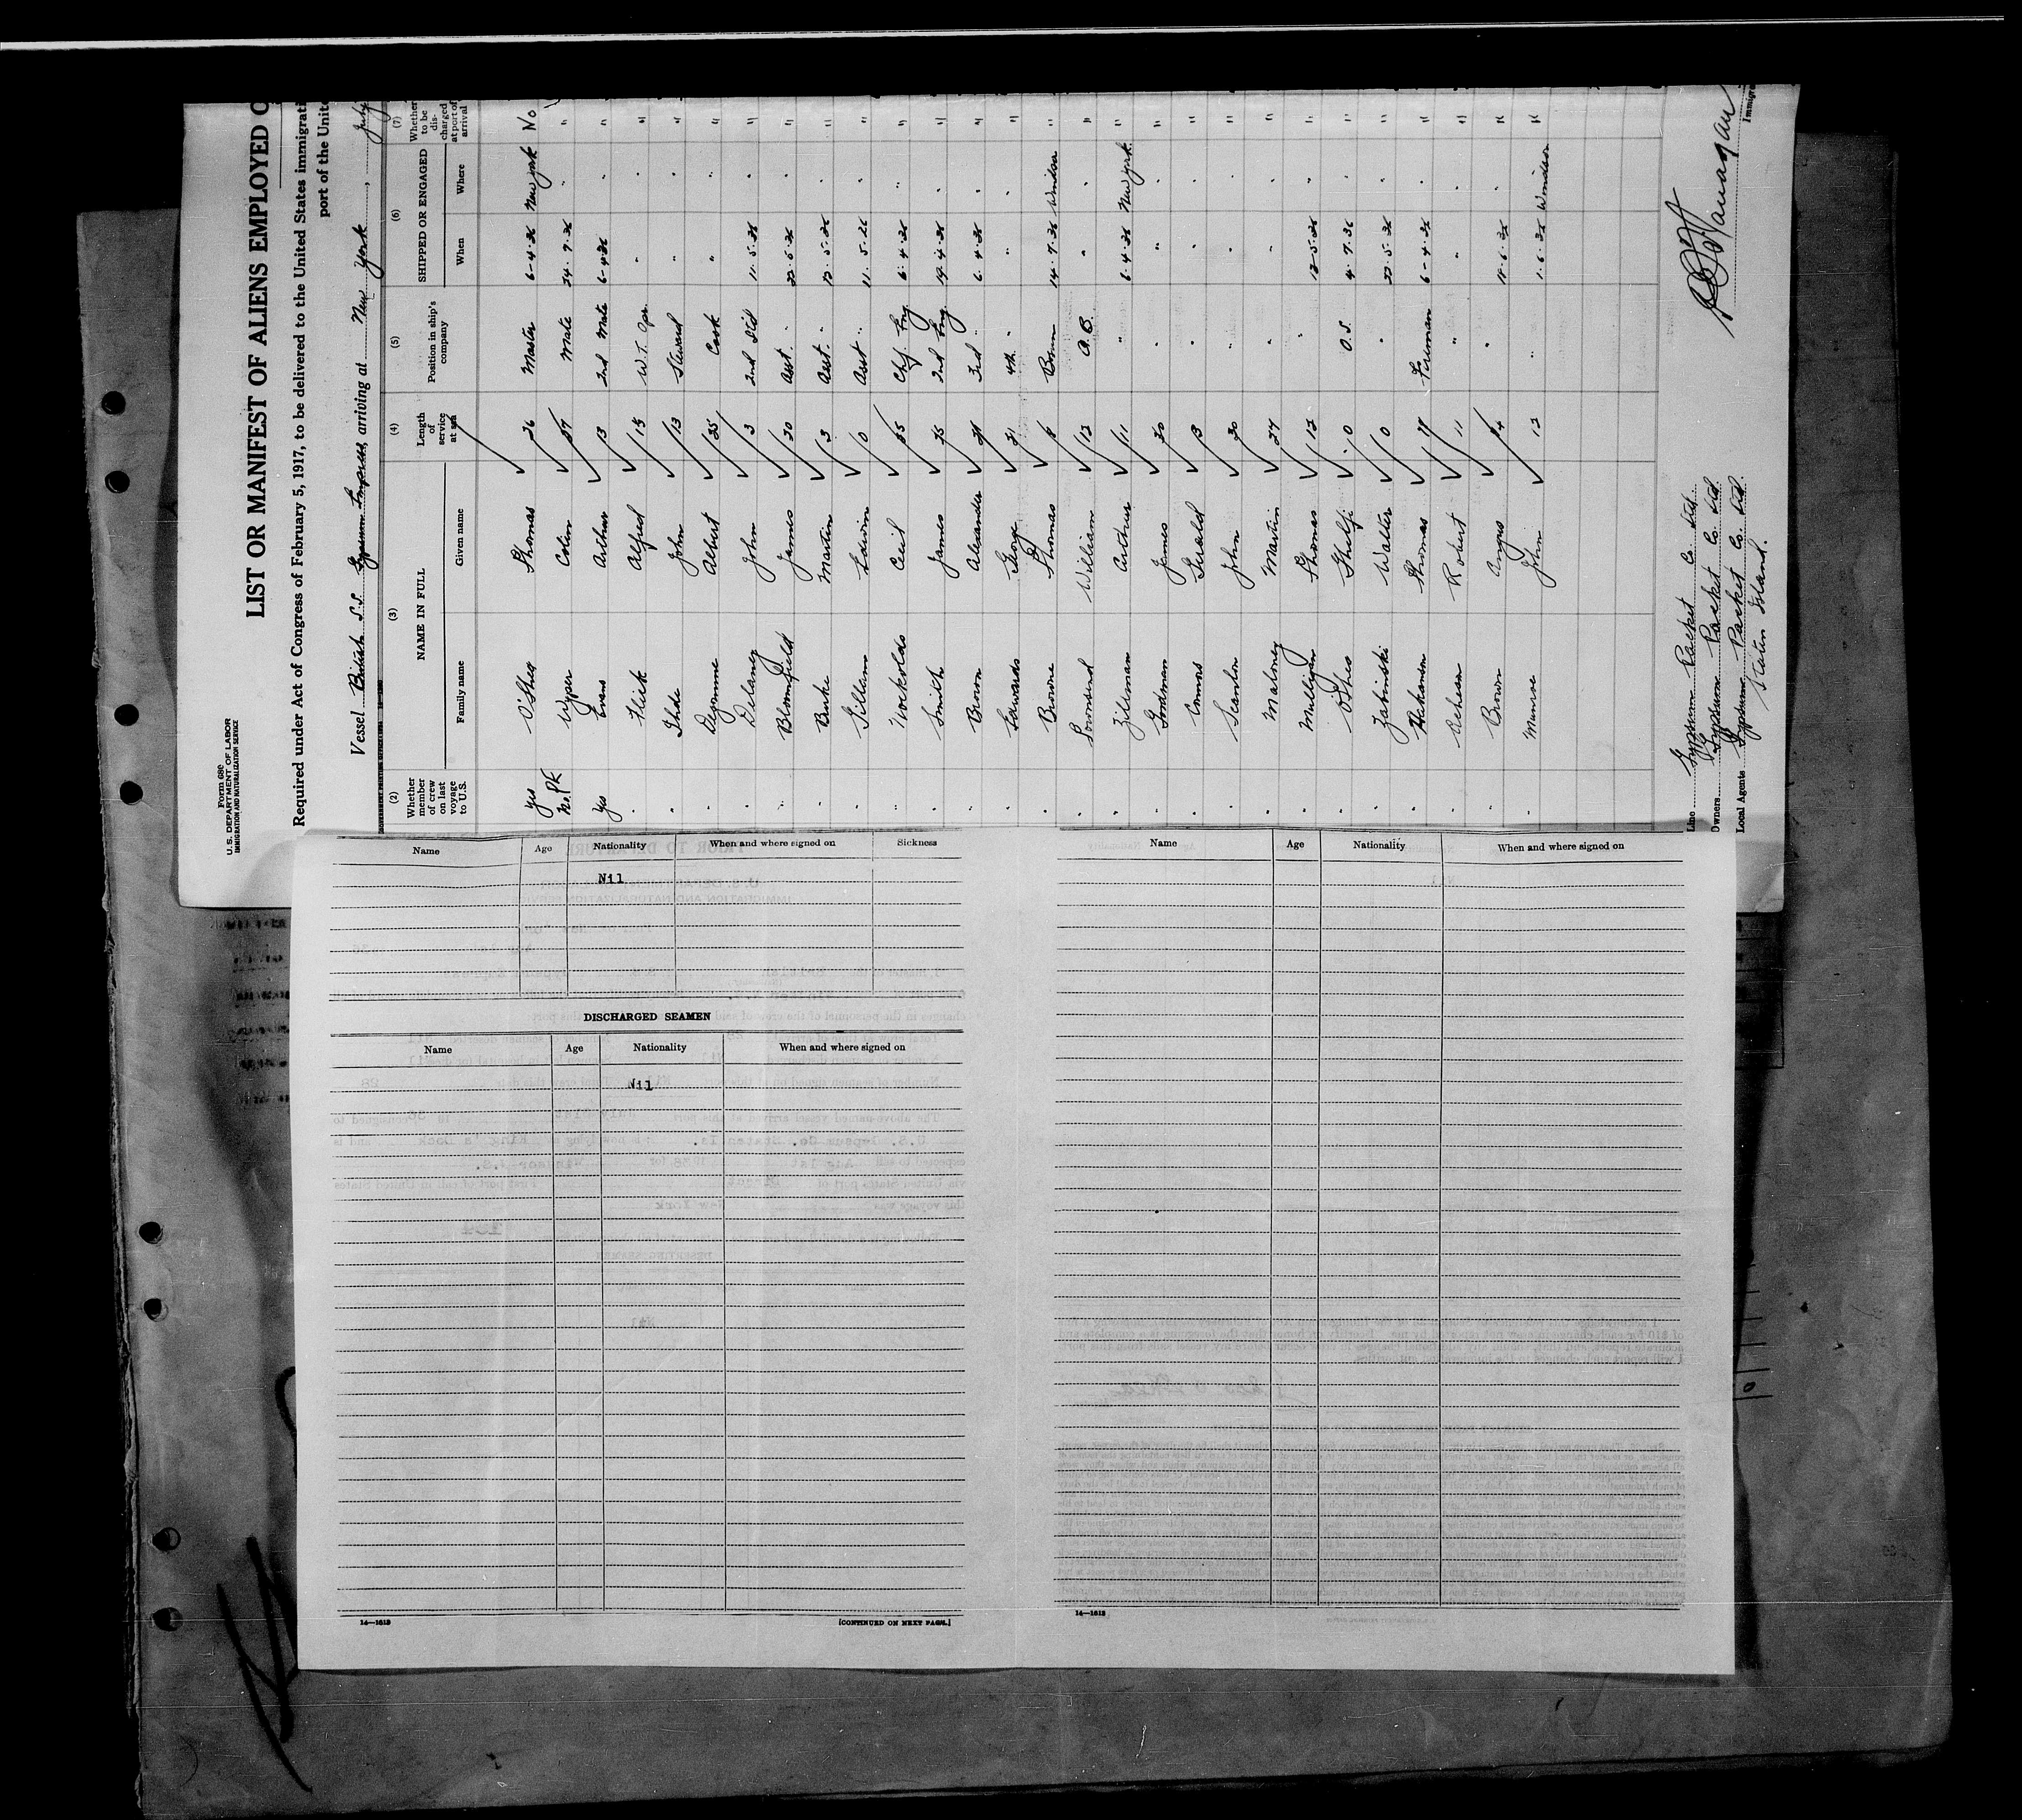 Form 680
U. S. DEPARTMENT OF LABOR
IMMIGRATION AND NATURALIZATION SERVICE
LIST OR MANIFEST OF ALIENS EMPLOYED O
Required under Act of Congress of February 5, 1917, to be delivered to the United States immigrati
port of the Unite
Vessel British S.S. Gypsum Empress, arriving at New York, July
(2) (3) (4) (5) (6) (7)
Whether member of crew on last voyage to U.S. NAME IN FULL Length of service at sea Position in ship's company SHIPPED OR ENGAGED Whether to be discharged at port of arrival
Family name Given name When Where
yes O'Shea Thomas 26 Master 6-4-36 New York No
No. PK Wyper Colin 37 Mate 24.7.36 " "
yes Evans Arthur 13 2nd Mate 6-4-36 " "
" Flick Alfred 15 W.T. Opr. " " "
" Ihde John 13 Steward " " "
" Degonne Albert 35 Cook " " "
" Delaney John 3 2nd Std 11.5.36 " "
" Bloomfield James 30 Asst. " 22.5.36 " "
" Burke Martin 3 Asst. " 12.5.36 " "
" Gillam Edwin 0 Asst " 11.5.36 " "
" Nockolds Cecil 35 Chf. Eng. 6.4.36 " "
" Smith James 35 2nd Eng. 19.4.36 " "
" Brown Alexander 3rd " 6.4.36 " "
" Edwards George 21 4th " " " "
" Browne Thomas 8 Bosun 14.7.36 Windsor "
" Townsend William 12 A.B. " " "
" Zillman Arthur 11 " 6.4.36 New York "
" Goodman James 20 " " " "
" Connors Gerald 3 " " " "
" Scanlon John 30 " " " "
" Maloney Martin 27 " " " "
" Mulligan Thomas 12 " 12-5-36 " "
" O'Shea 0 O.S. 4.7.36 " "
" Zabinski Walter 0 " 22.5.36 " "
" Hakanson Thomas Fireman 6-4-36 " "
" Acheson Robert 11 " " " "
" Brown Angus 24 " 18.6.36 " "
" Munroe John 12 " 1.6.36 Windsor "
Line Gypsum Packet Co. Ltd.
Owners Gypsum Packet Co. Ltd.
Local Agents Gypsum Packet Co. Ltd.
Staten Island.
Immigra
Name Age Nationality When and where signed on Sickness
Nil
DISCHARGED SEAMEN
Name Age Nationality When and where signed on
Nil
14—1613 [CONTINUED ON NEXT PAGE.]
Name Age Nationality When and where signed on
14—1613